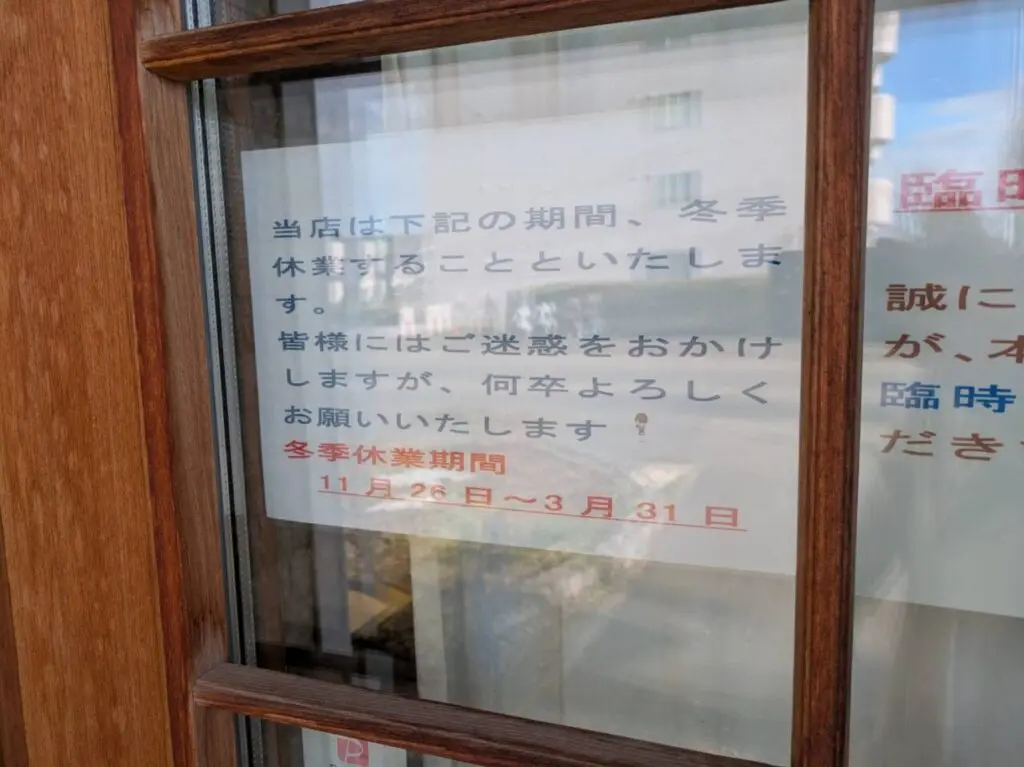 当店は下記の期間、冬季
休業することといたしま
す。
皆様にはご迷惑をおかけ
しますが、何卒よろしく
お願いいたします
冬季休業期間
11月26日～3月31日
臨時
誠に
が、本
臨時
だき